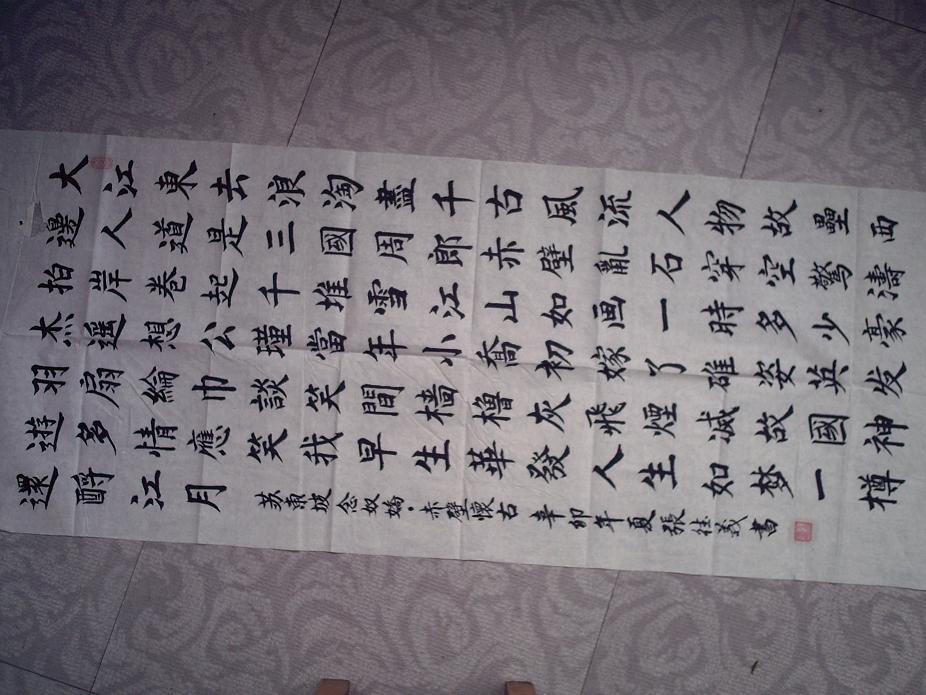 大江東去浪淘盡千古風流人物故壘西
邊人道是三國周郎赤壁亂石穿空驚濤
拍岸卷起千堆雪江山如画一時多少豪
杰遥想公瑾當年小喬初嫁了雄姿英发
羽扇綸巾談笑間樯櫓灰飛煙滅故國神
遊多情應笑我早生華發人生如梦一樽
還酹江月
苏東坡念奴嬌·赤壁懷古 辛卯年夏張義書